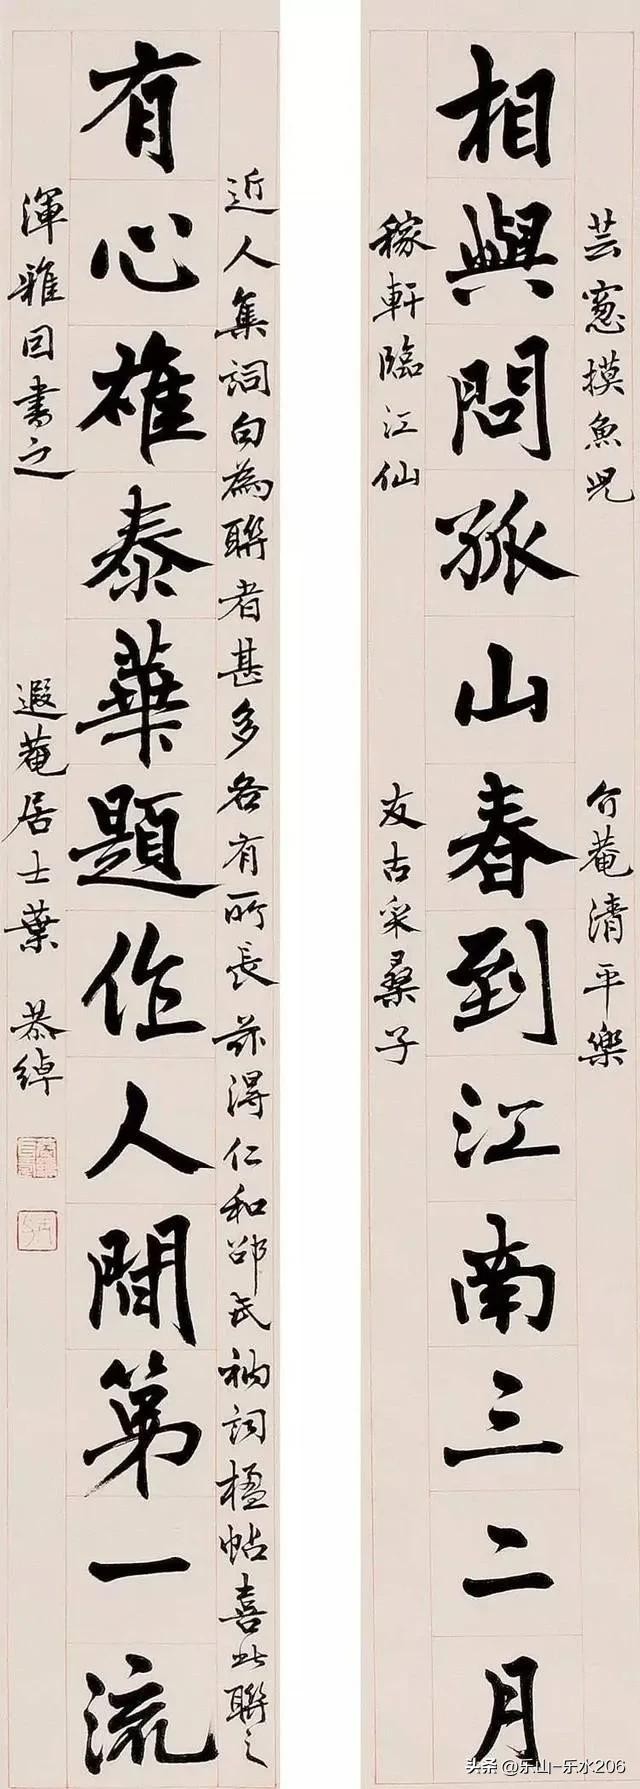 芸窻摸魚兒
介菴清平樂
相與問孤山春到江南三二月
稼軒臨江仙
友古采桑子
近人集詞句為聯者甚多各有所長茲得仁和邵氏衲詞楹帖喜此聯之
有心雄泰華題作人間第一流
渾雅因書之
遐菴居士葉恭綽
头条@乐山-乐水206